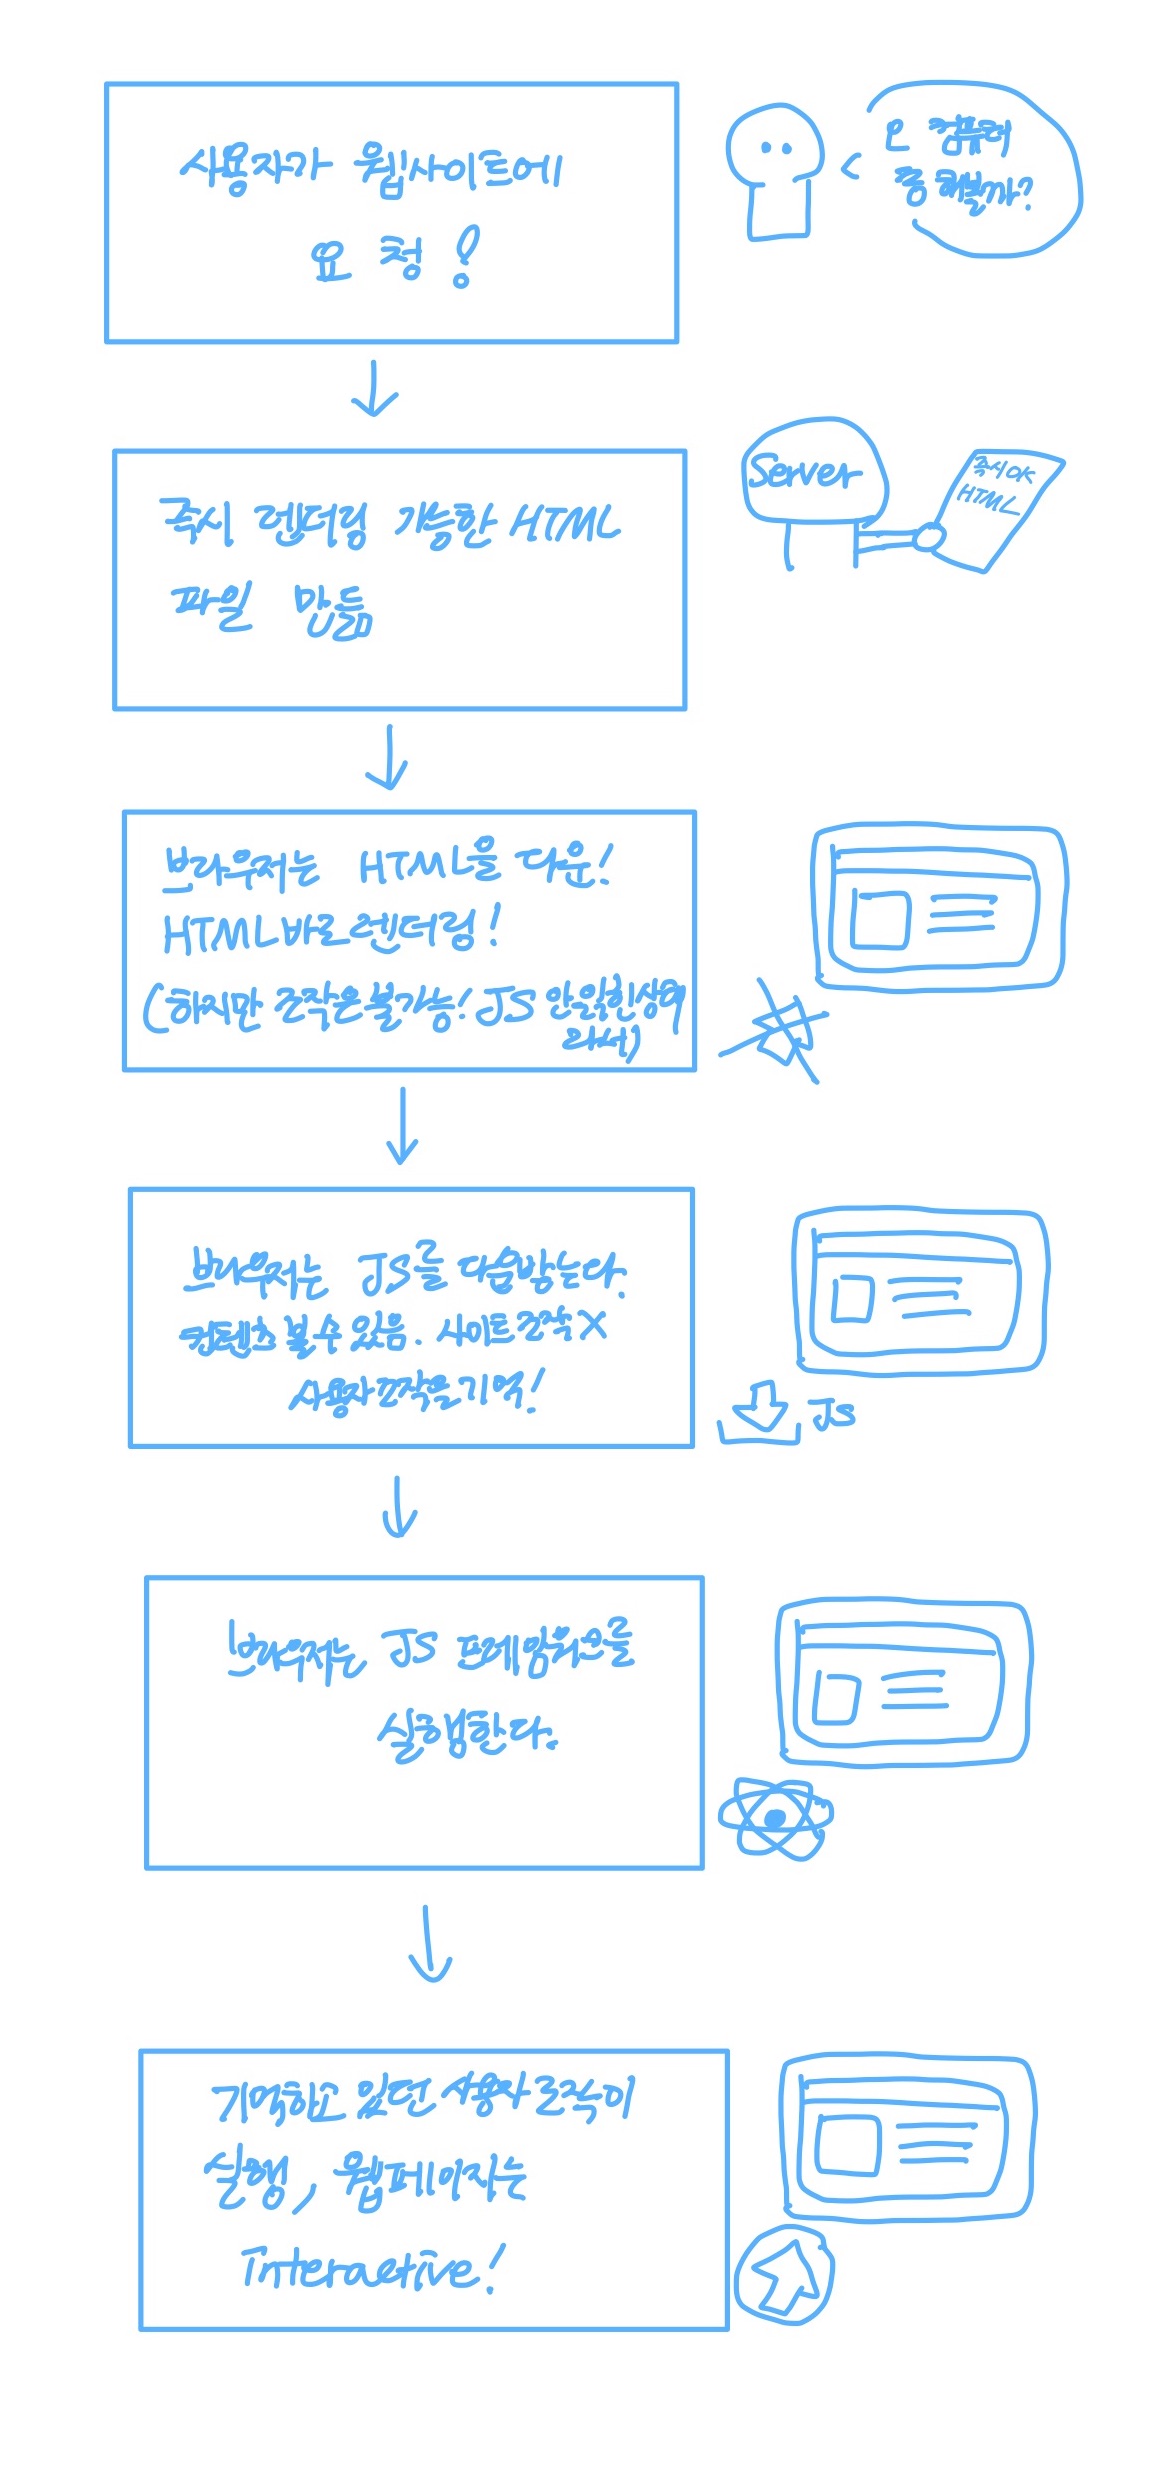 사용자가 웹사이트에
요청!
오 컴퓨터
좀 해볼까?
즉시 렌더링 가능한 HTML
파일 만듦
Server
즉시OK
HTML
브라우저는 HTML을 다운!
HTML 바로 렌더링!
(하지만 조작은 불가능! JS 안읽힌상태
라서)
브라우저는 JS를 다운받는다.
컨텐츠 볼수 있음. 사이트 조작 X
사용자 조작을 기억!
JS
브라우저는 JS 프레임워크를
실행한다.
기억하고 있던 사용자 조작이
실행, 웹페이지는
interactive!